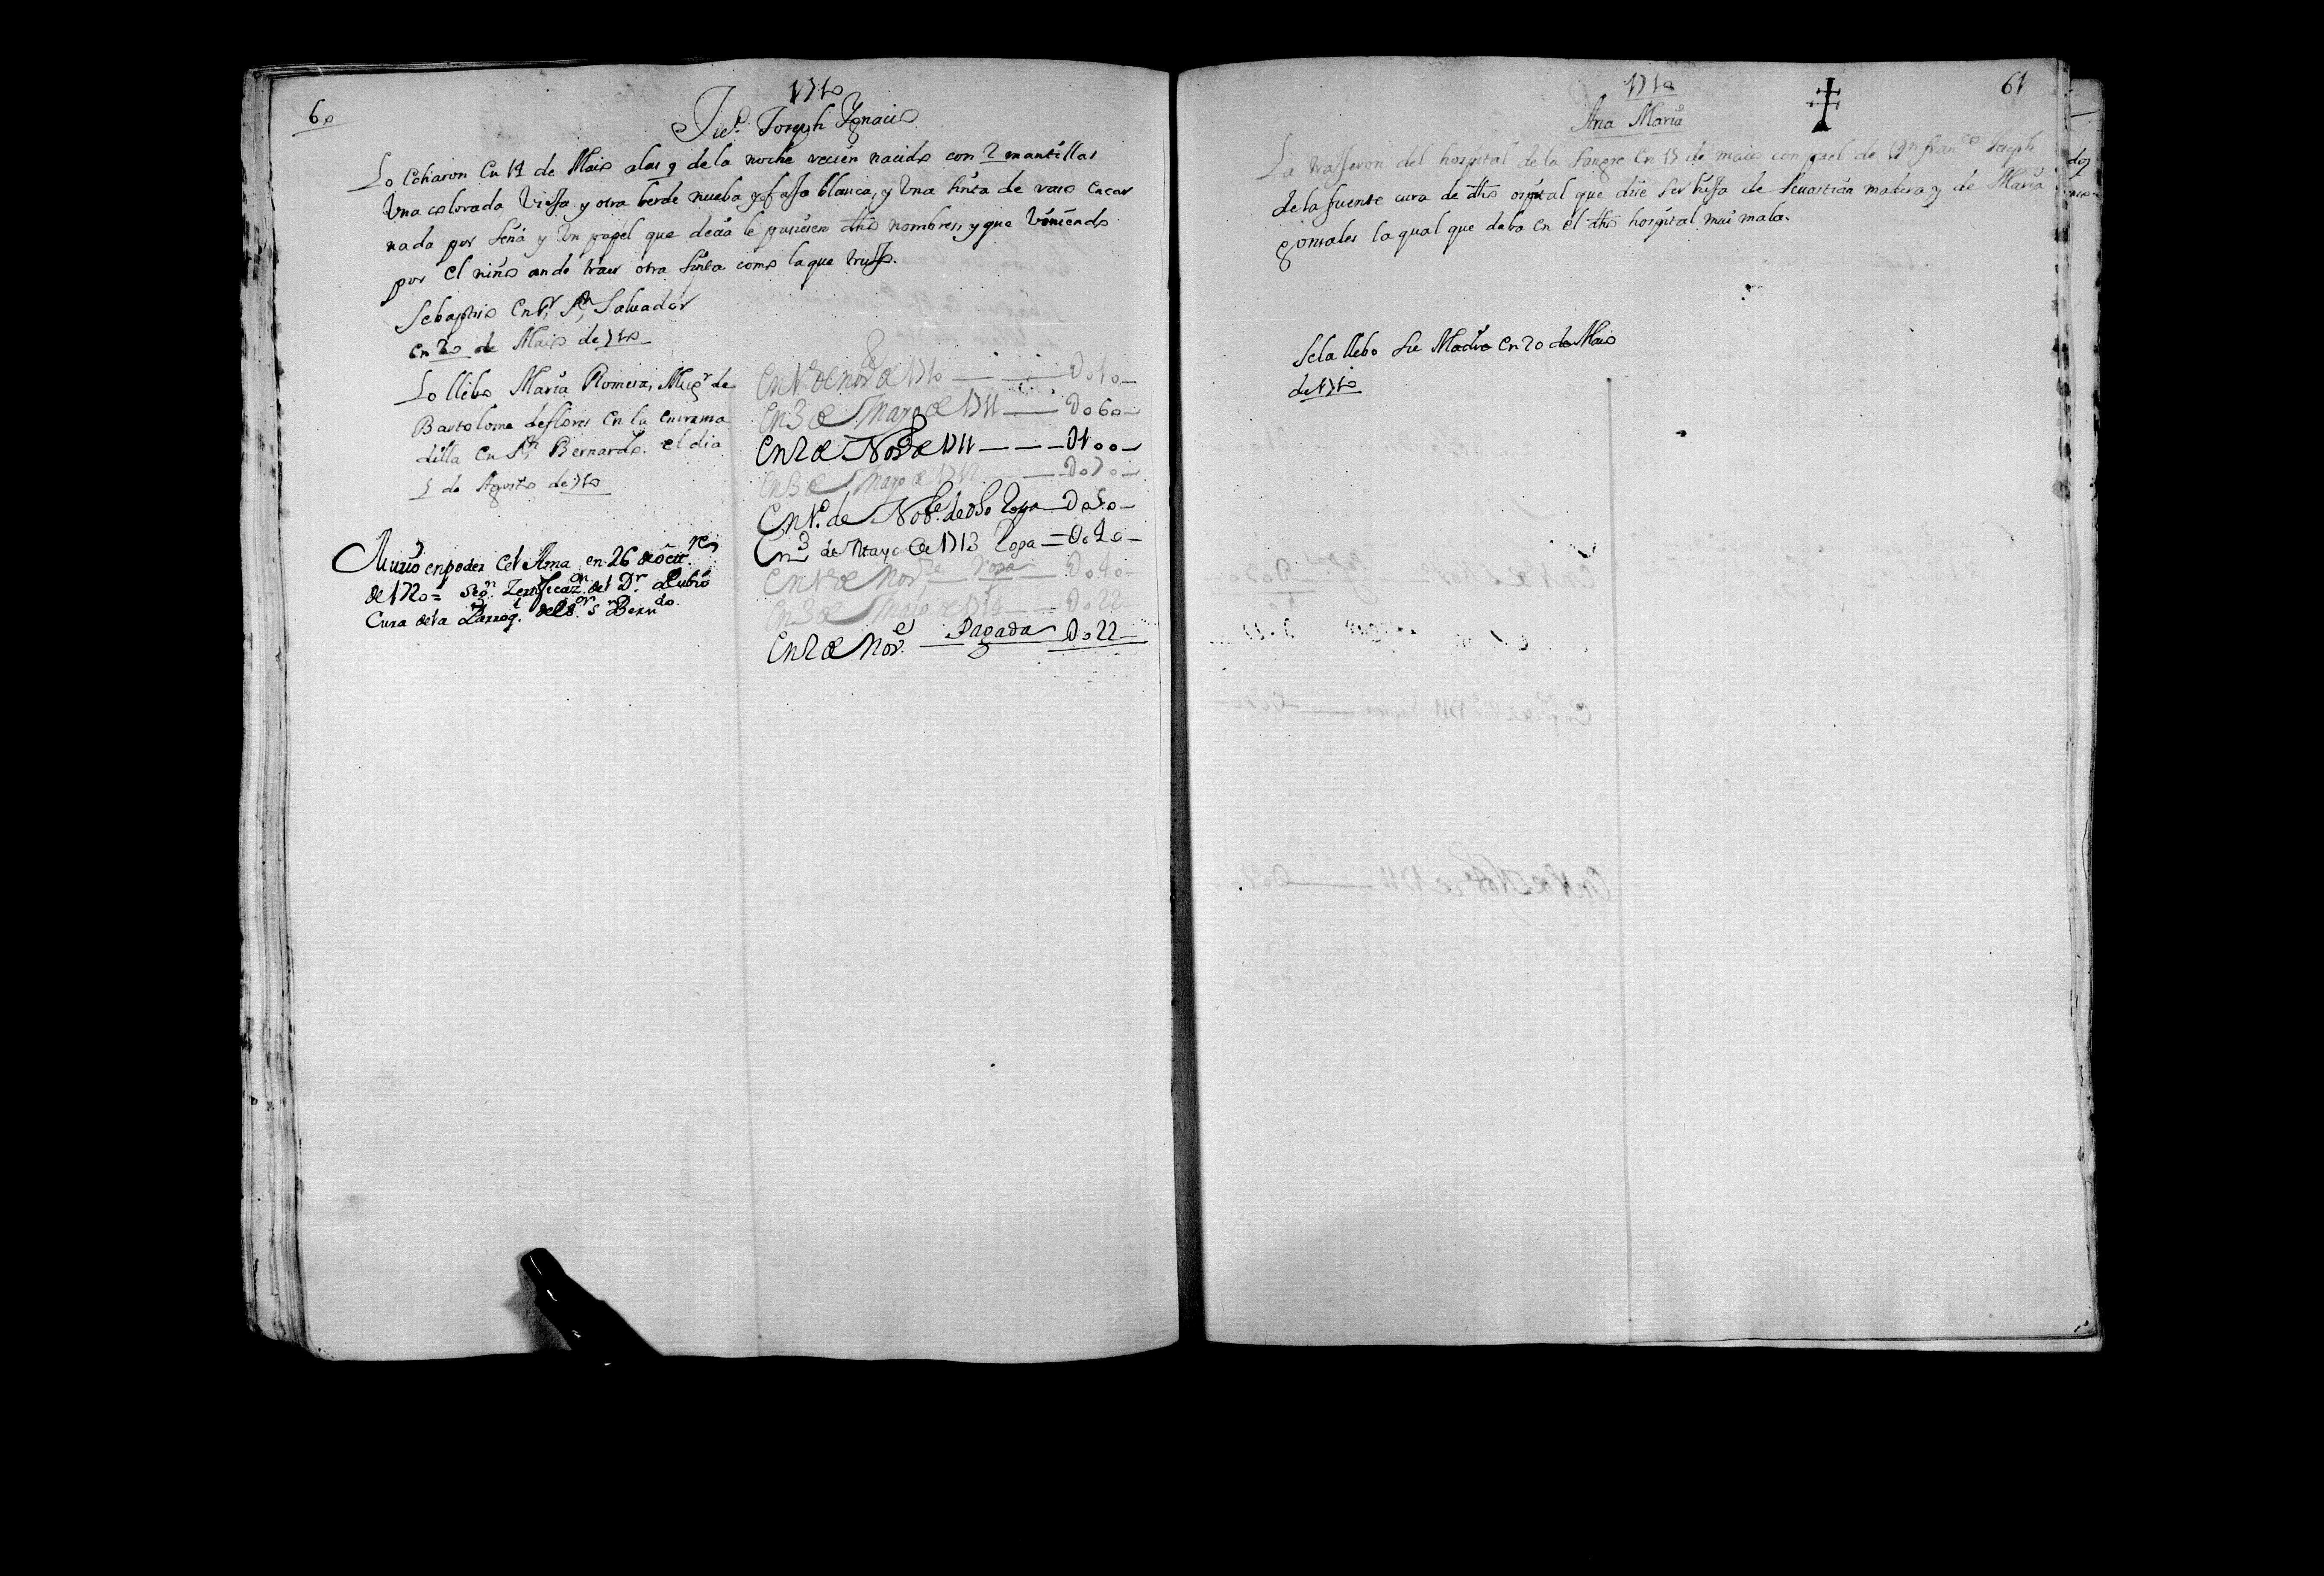 60
1710
Joseph Ygnacio
Lo Echaron En 14 de Maio alas 9 de la noche recien nacido con 2 mantillas
Una colorada Viessa y otra berde nueba y fassa blanca, y Una sinta de raso encar
nada por seña y Un papel que decia le pusiesen dhos nombres y que Viniendo
por El niño an de traer otra sinta como la que trusso.
Sebaptiso En Sn Salvador
en 20 de Maio de 710
Lo llebo Maria Romera, Mugr de
Bartolome deflores En la encrama
dilla En Sn Bernardo. el dia
5 de Agosto de 710
Murio enpoder del Ama en 26 de octre
de 1720 = segn Zertificazon del Dr Rubio
Cura de la Parroql de Sr Sn Berndo
En 1º de nove de 1710 — Do10
En 3 de Mayo de 1711 — Do60
En 2 de Nove de 1711 — D100
En 3 de Mayo de 1712 — Do70
En 1º de Nobe de dso Ropa — Do50
En 3 de Mayo de 1713 Ropa — Do40
En 1º de Novre Ropa — Do40
En 3 de Mayo de 1714 — Do22
En 2 de Nove Pagada Do22
61
1710
Ana Maria
La trasseron del hospital de la sangre En 15 de maio con papel de Dn franco Joseph
de la fuente cura de dho ospital que dise ser hissa de sevastian mathera y de Maria
gonsales la qual quedaba en el dho hospital mui mala.
Sela llebo su Madre en 20 de Maio
de 1710